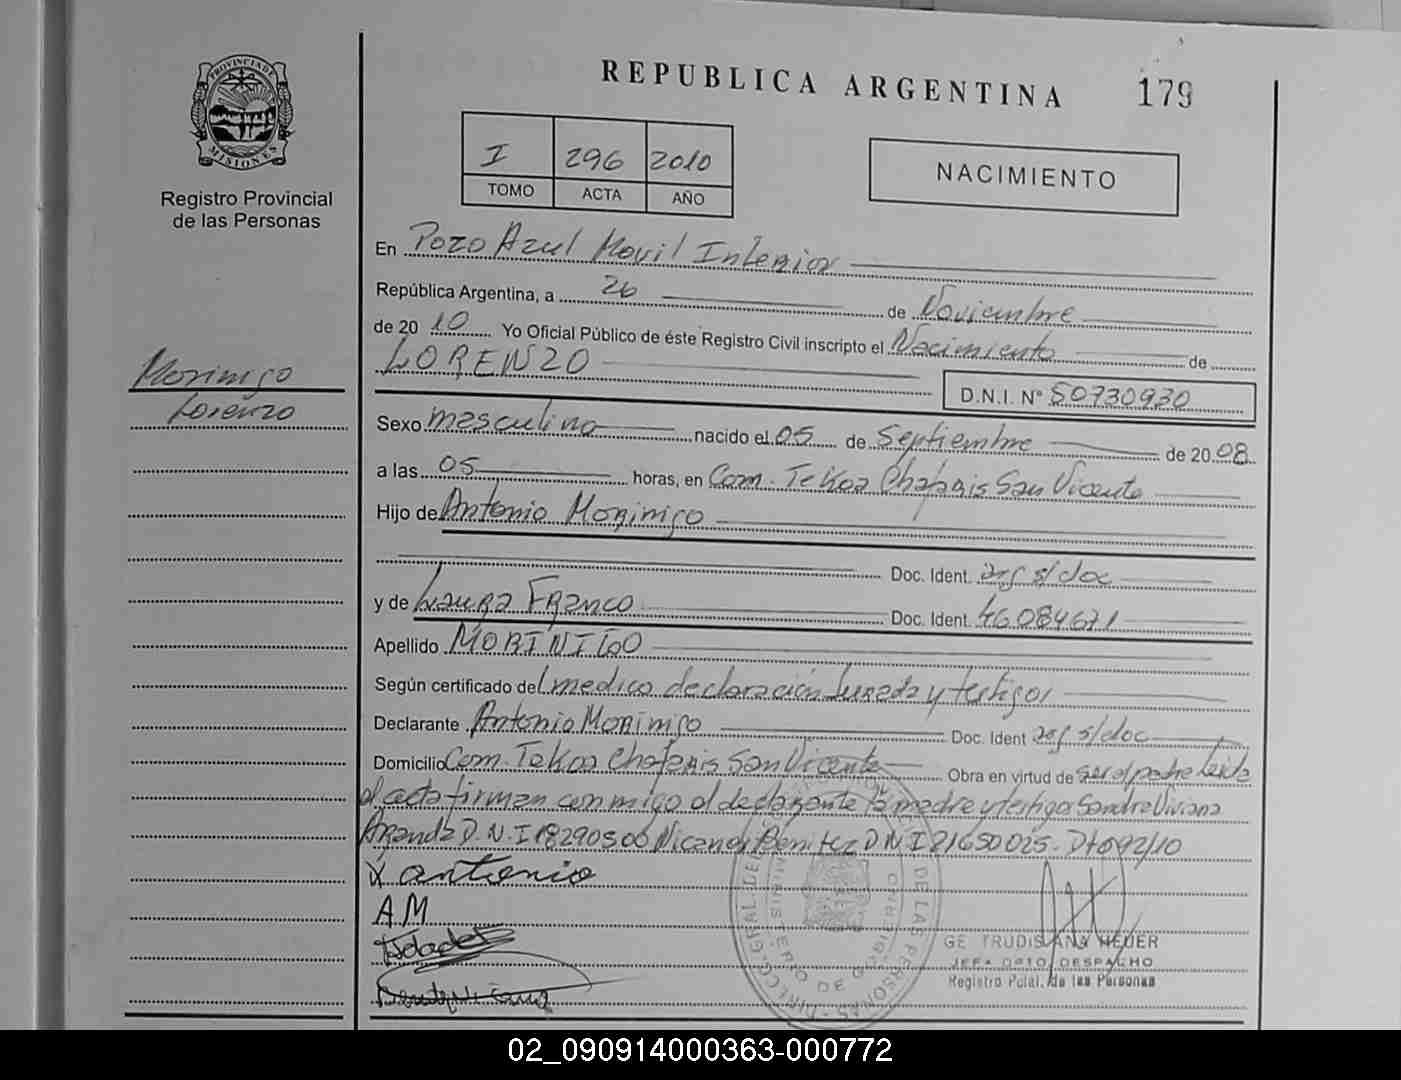 REPUBLICA ARGENTINA 179
PROVINCIA DE MISIONES
Registro Provincial
de las Personas
I 296 2010
TOMO ACTA AÑO
NACIMIENTO
En Pozo Azul Movil Interior
República Argentina, a 26 de Noviembre
de 2010 Yo Oficial Público de éste Registro Civil inscripto el Nacimiento de
LORENZO
D.N.I. N° 50730930
Morinigo
Lorenzo
Sexo masculino nacido el 05 de Septiembre de 2008
a las 05 horas, en Com. Tekoa Chafariz San Vicente
Hijo de Antonio Morinigo
Doc. Ident. arg s/doc
y de Laura Franco Doc. Ident. 46084671
Apellido MORINIGO
Según certificado del medico declaración Jurada y testigos
Declarante Antonio Morinigo Doc. Ident arg s/doc
Domicilio Com. Tekoa Chafariz San Vicente Obra en virtud de ser el padre Leida
el acta firman conmigo el declarante la madre y testigos Sandra Viviana
Aranda D.N.I 18290500 Nicanor Benitez DNI 21650025. Dto 92/10
X antonio
A M
GE TRUDIS ANA HEUER
JEFA DPTO. DESPACHO
Registro Pcial. de las Personas
02_090914000363-000772